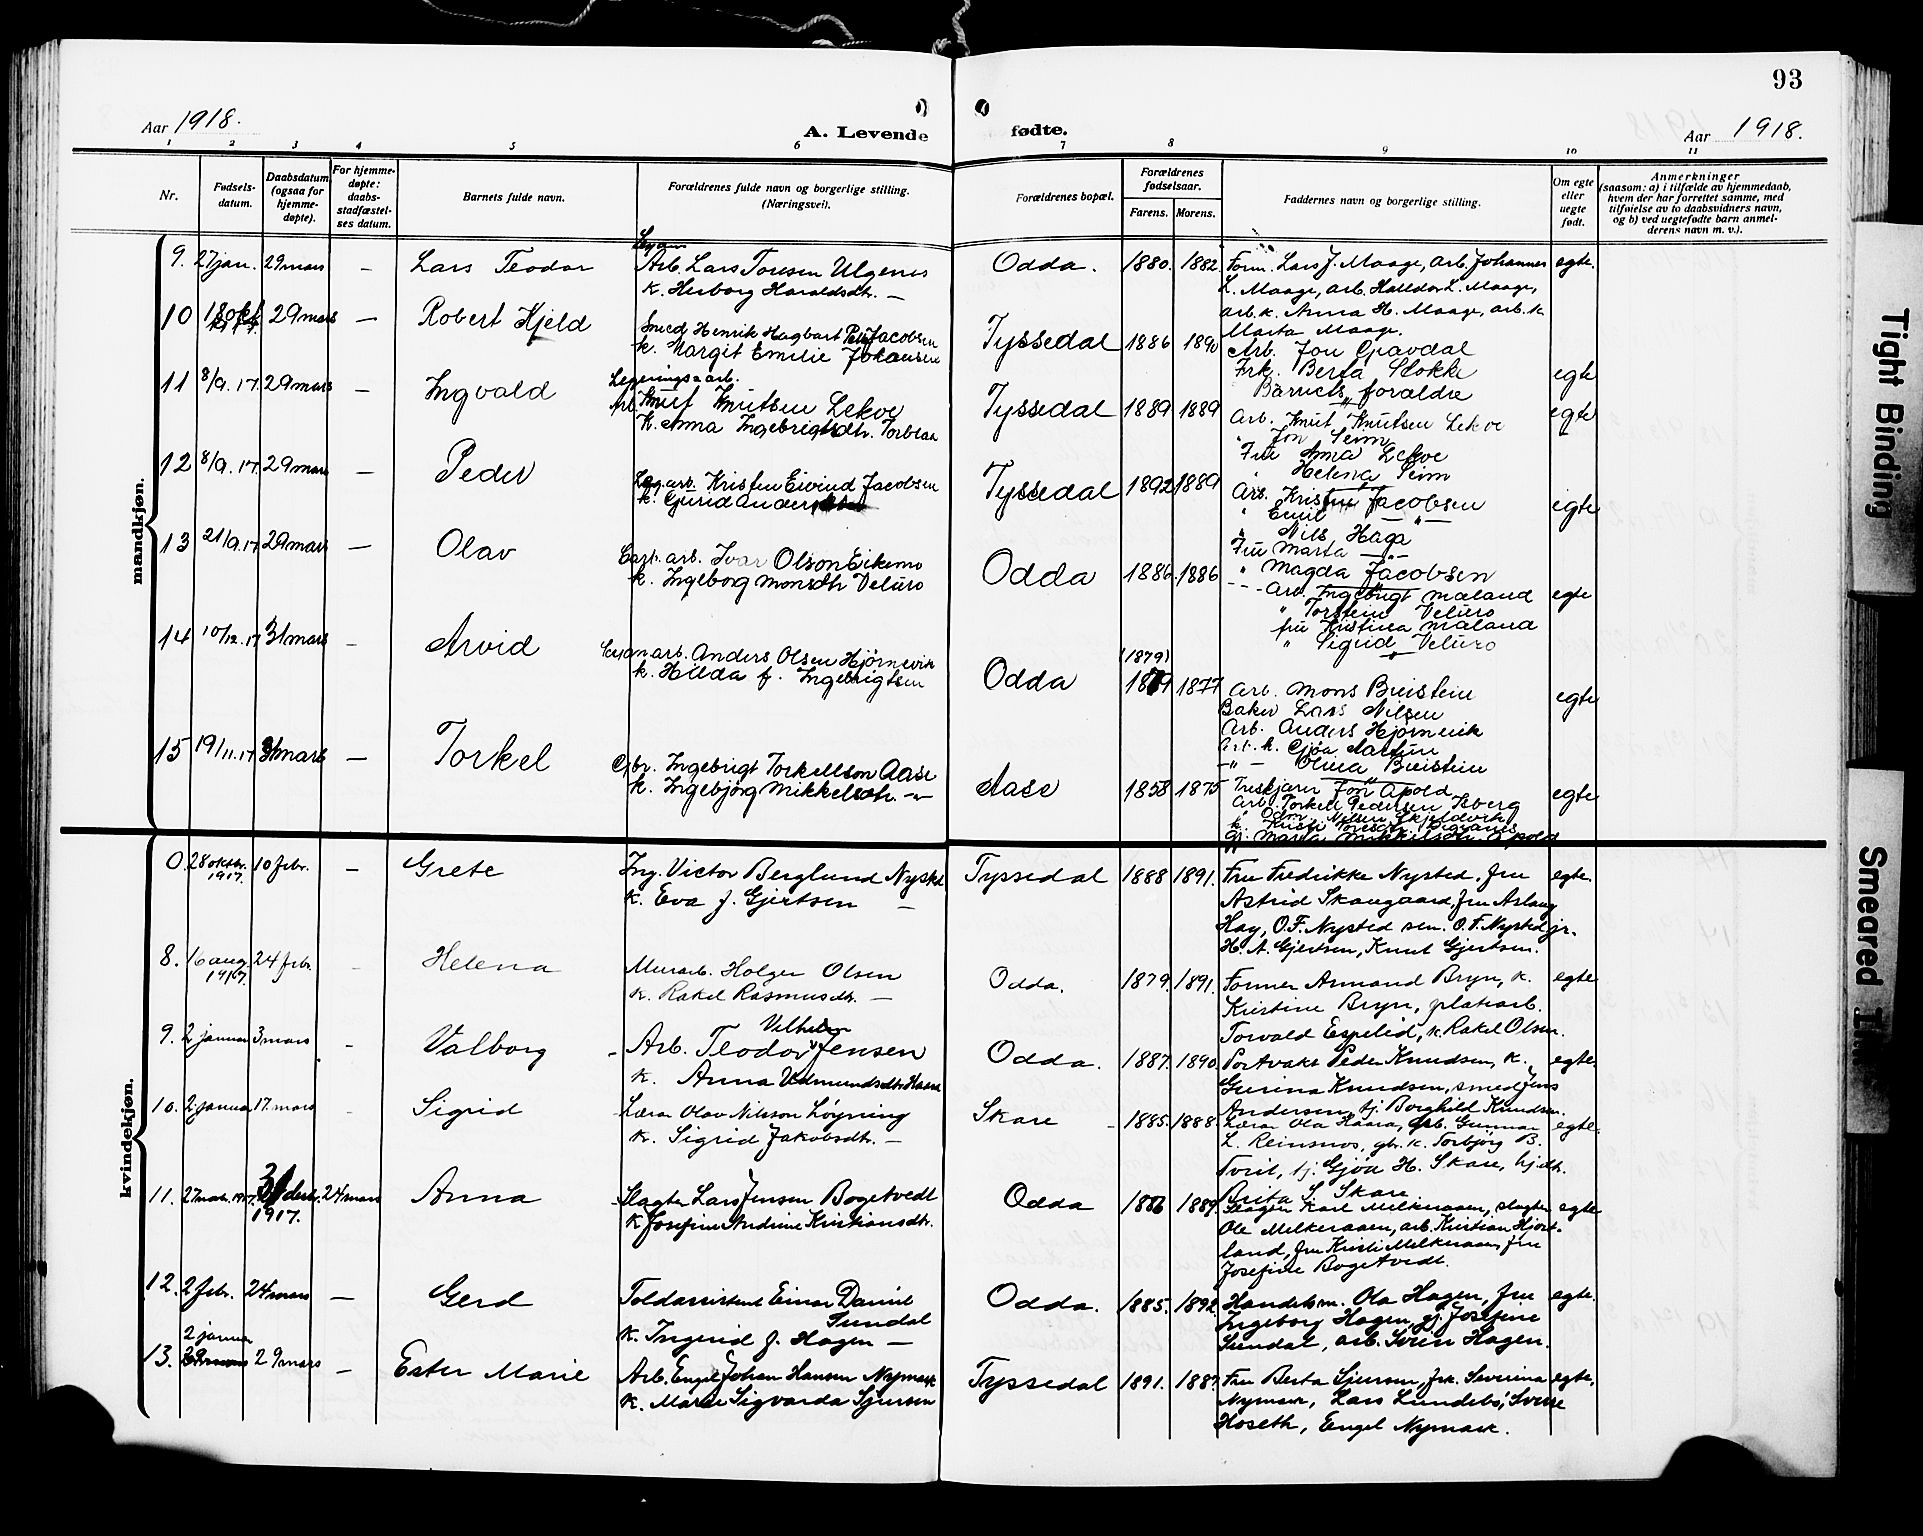 93
Aar 1918.
A. Levende
fødte.
Aar 1918.
1 2 3 4 5 6 7 8 9 10 11
Nr.
Fødsels-
datum.
Daabsdatum
(ogsaa for
hjemme-
døpte).
For hjemme-
døpte:
daabs-
stadfæstel-
ses datum.
Barnets fulde navn.
Forældrenes fulde navn og borgerlige stilling.
(Næringsvei).
Forældrenes bopæl.
Forældrenes
fødselsaar.
Farens. Morens.
Faddernes navn og borgerlige stilling.
Om egte
eller
uegte
født.
Anmerkninger
(saasom: a) i tilfælde av hjemmedaab,
hvem der har forrettet samme, med
tilføielse av to daabsvidners navn,
og b) ved uegtefødte barn anmel-
derens navn m. v.).
mandkjøn.
9. 27 jan. 29 mars — Lars Teodor
Arb. Lars Tonesen Ulgenes
k. Herborg Haraldsdtr. —
Odda. 1880. 1882.
Form. Lars J. Maage, arb. Johannes
L. Maage, arb. Halldor L. Maage,
arb. k. Anna H. Maage, arb. k.
Marta Maage.
egte.
10 18 okt 29 mars — Robert Kjeld
Smed Henrik Hagbart Jacobsen
k. Margit Emilie Johansen
Tyssedal 1886 1890
Arb. Jon Gravdal
Frk. Berta Slokke
Barnets forældre
egte
11 8/9. 17. 29 mars — Ingvald
Legeringsarb.
Knut Knutsen Lekve
k. Anna Ingebrigtsdtr. Torblaa
Tyssedal 1889 1889
Arb. Knut Knutsen Lekve
" Jon Seim
Fru Anna Lekve
" Helena Seim
egte
12 8/9. 17. 29 mars — Peder
Leg. arb. Kristen Eivind Jacobsen
k. Gurid
Tyssedal 1892 1889
Arb. Kristen Jacobsen
" Emil — " —
" Nils Haga
Fru Marta — " —
" Magda Jacobsen
egte
13 21/9. 17 29 mars — Olav
Carb. arb. Ivar Olson Eikemo
k. Ingeborg Monsdtr Veluro
Odda 1886 1886
Arb. Ingebrigt Maland
" Torstein Veluro
fru Kristina Maland
" Sigrid Veluro
egte
14 10/12. 17 31 mars - Arvid
Cyan arb. Anders Olsen Hjørnevik
k. Hilda f. Ingebrigtsen
Odda (1879) 1877
Arb. Mons Buistein
Baker Lars Nilsen
Arb. Anders Hjørnevik
Arb. k. Gjøa
— " — Olina Buistein
egte
15 19/11. 17 31 mars — Torkel
Gbr. Ingebrigt Torkellson Aase
k. Ingebjørg Mikkelsdtr. — " —
Aase 1858 1875
Jon Apold
Arb. Torkell Pedersen Isberg
Nilsen Skjeldvik
Gj. Marta Mikkelsdtr. Apold
egte
kvindekjøn.
0. 28 oktbr. 1917. 10 febr. — Grete
Ing. Victor Berglund Nysted
k. Eva f. Gjertsen —
Tyssedal 1888 1891.
Fru Fredrikke Nysted, fru
Astrid Skaugaard, fru Aslaug
Hay, O. F. Nysted sen. O. F. Nysted jr.
H. A. Gjertsen, Knut Gjertsen.
egte.
8. 16 aug. 1917. 24 febr. - Helena
Murarb. Holger Olsen
k. Rakel Rasmusdtr. —
Odda. 1879. 1891.
Former Armand Bryn, k.
Kristine Bryn, platearb.
Torvald Espelid, k. Rakel Olsen.
egte
9. 2 januar 3 mars - Valborg
Vilhelm
Arb. Teodor Jensen
k. Anna Udmundsdtr.
Odda. 1887. 1890.
Portvakt Peder Knudsen, k.
Gurina Knudsen, smed Jens
Andersen, tj. Borghild Knudsen.
egte
10. 2 januar 17. mars - Sigrid
Lærer Olav Nilsson Løyning
k. Sigrid Jakobsdtr. —
Skare - 1885. 1888.
Lærer Ola Haara, arb. Gunnar
L. Reinsnos, gbr. k. Torbjørg B.
Tveit, tj. Gjøa H. Skare, hj.dtr.
Brita S. Skare
egte.
11. 27 1917. 31 desbr. 1917. 24 mars Anna
Slagter Lars Jensen Bogetvedt
k. Josefine Andrine Kristiansdtr.
Odda 1886 1889.
Slagter Karl Melkeraaen, slagter
Ole Melkeraaen, arb. Kristian Hjort-
land, fru Kristi Melkeraaen, fru
Josefine Bogetvedt.
egte
12. 2 febr. 24 mars — Gerd
Toldassistent Einar Daniel
Sundal
k. Ingerid f. Hagen —
Odda. 1885. 1892.
Handelsm. Ola Hagen, fru
Ingeborg Hagen, gj. Josefine
Sundal, arb. Svein Hagen.
egte.
2 januar
13. 29 mars — Ester Marie
Arb. Engel Johan Hansen Nymark
k. Marie Sigvarda Sjursen
Tyssedal 1891. 1887.
Fru Berta Sjursen, frk. Severina
Nymark, Lars Lundebo, Sverre
Hoseth, Engel Nymark.
egte.
Tight Binding
Smeared